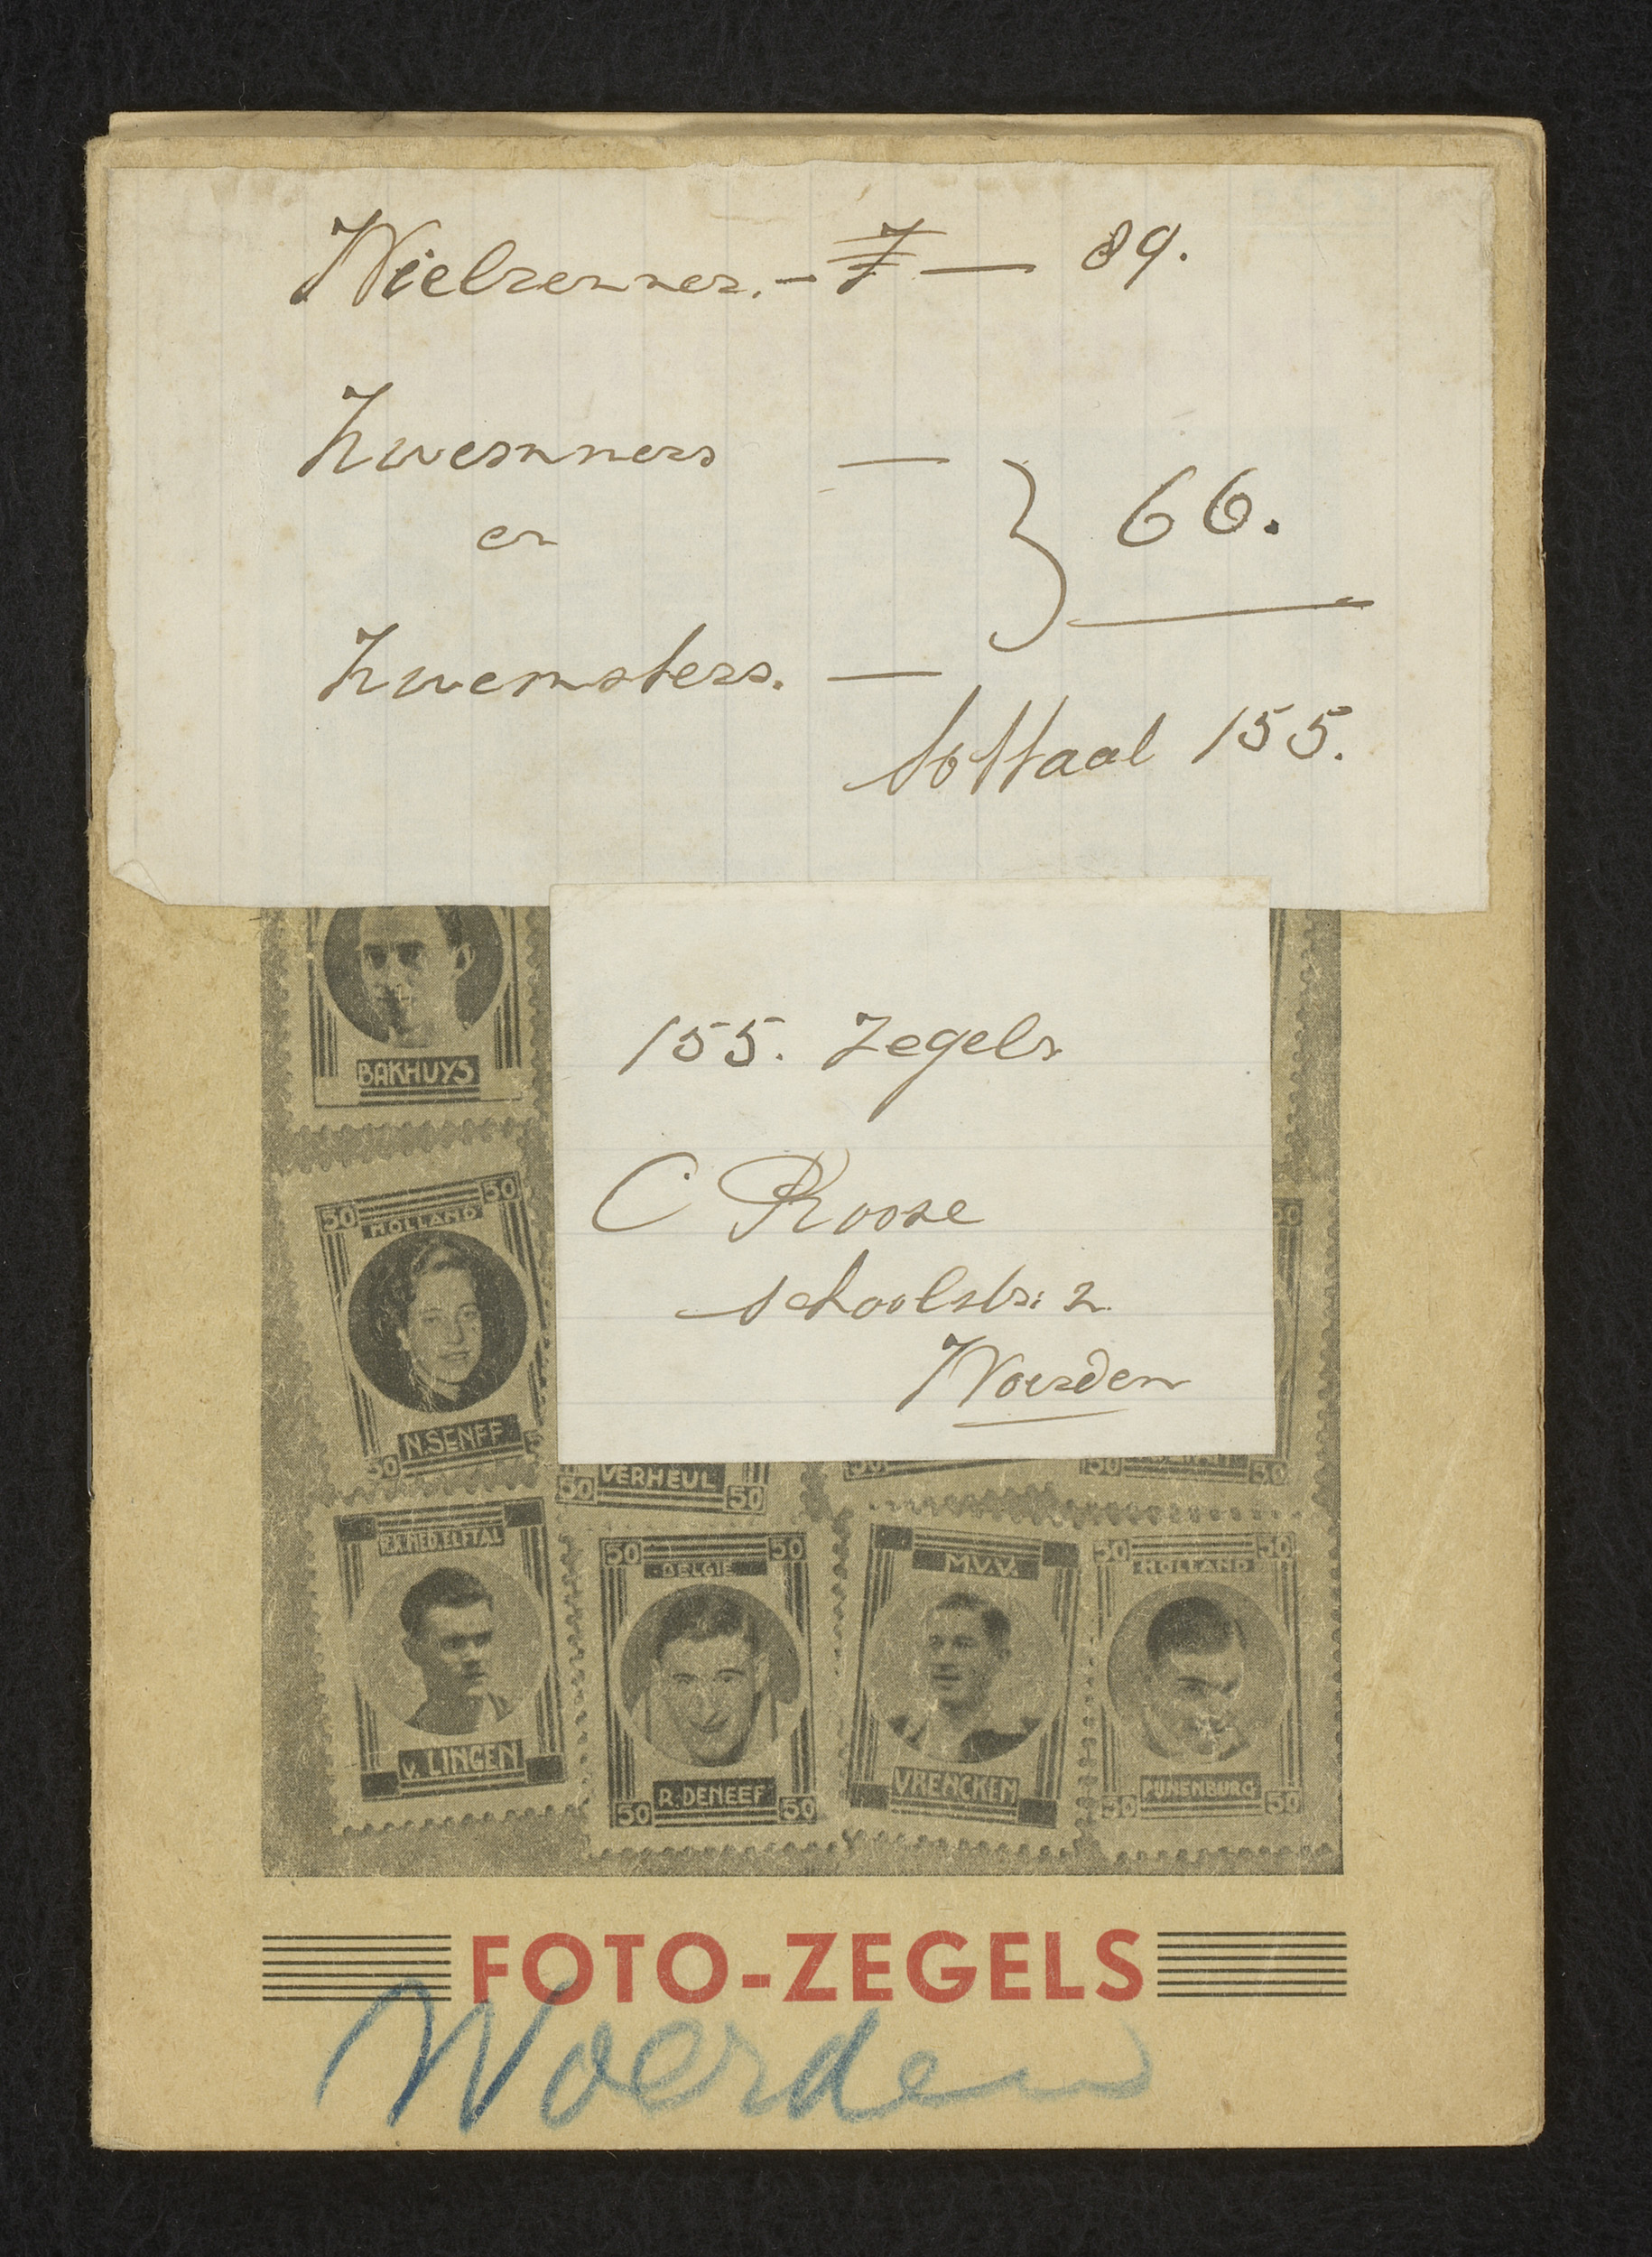 Wielrenner. - 7 — 89.
Zwemmers —
en
66.
Zwemsters. —
tottaal 155.
BAKHUYS
155. Zegels
C Roose
schoolstr: 2
Woerden
50 50
HOLLAND
N. SENFF
50
VERHEUL
50 50
50
50 50
R.K. NED. ELFTAL
V. LINGEN
50 50
BELGIE
R. DENEEF
50 50
M.V.V.
VRENCKEN
50 50
HOLLAND
PIJNENBURG
50 50
FOTO-ZEGELS
Woerden